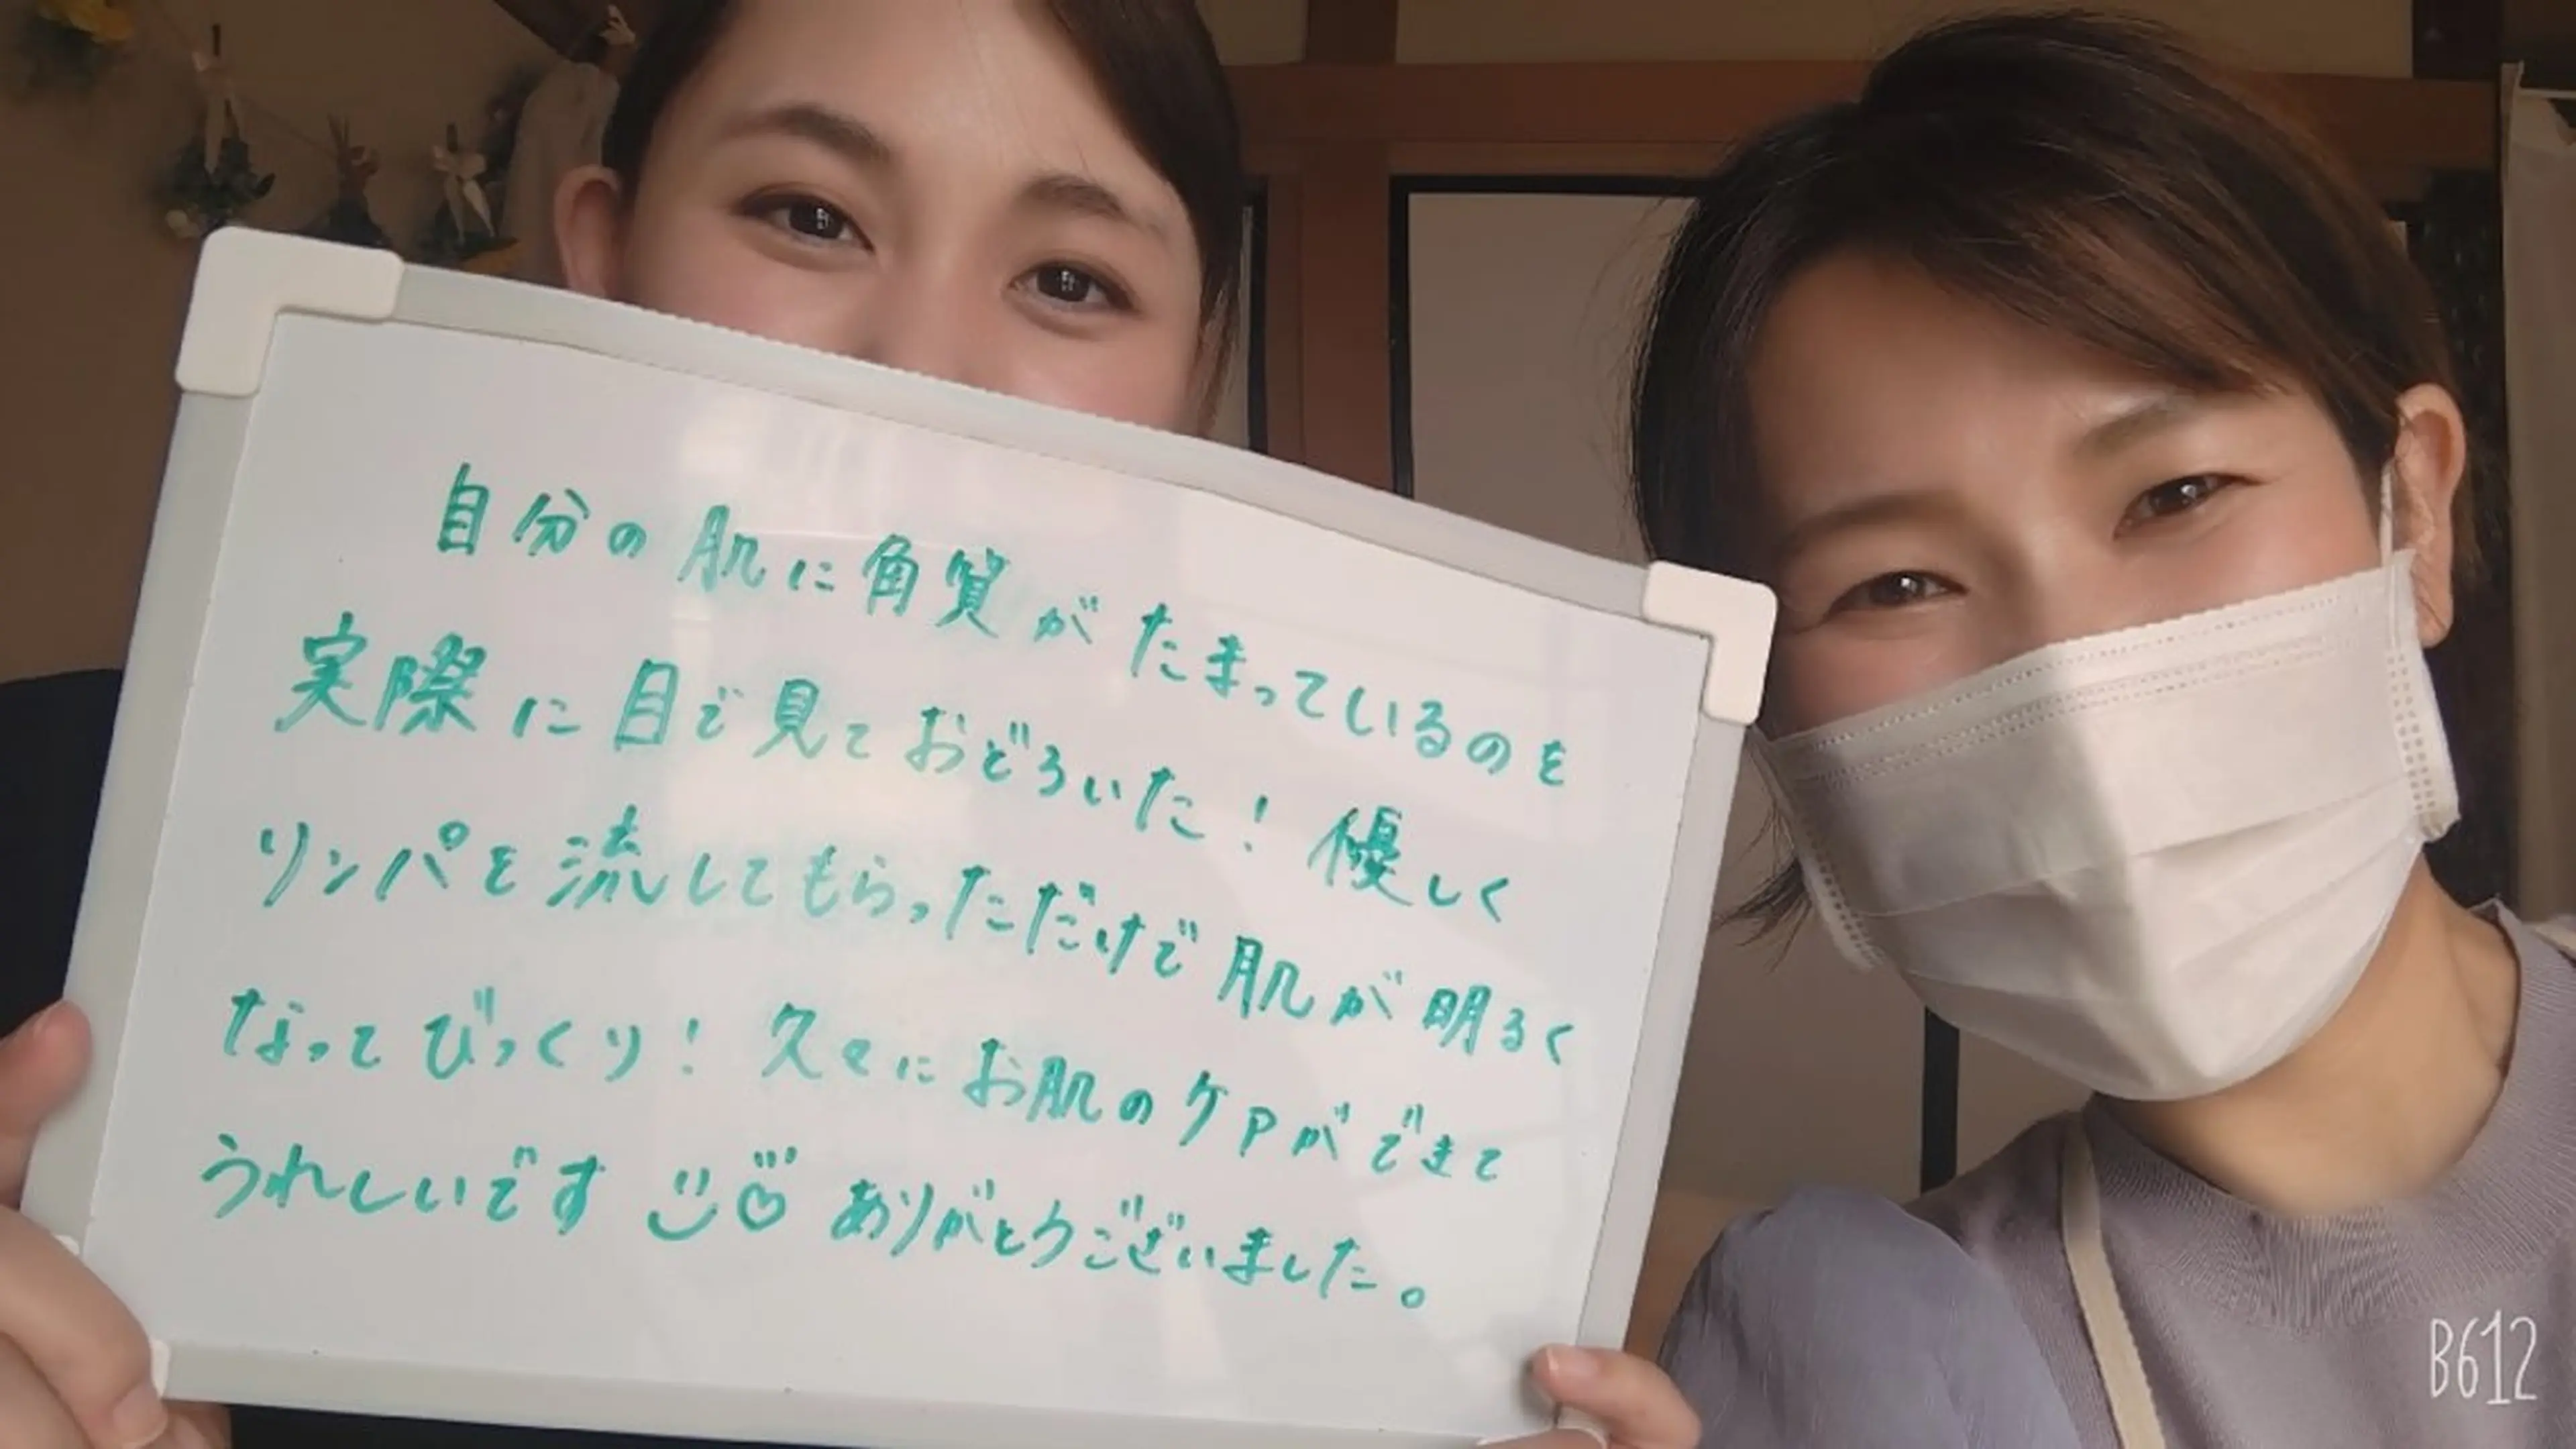 自分の肌に角質がたまっているのを
実際に目で見ておどろいた！優しく
リンパを流してもらっただけで肌が明るく
なってびっくり！久々にお肌のケアができて
うれしいです ありがとうございました。
B612